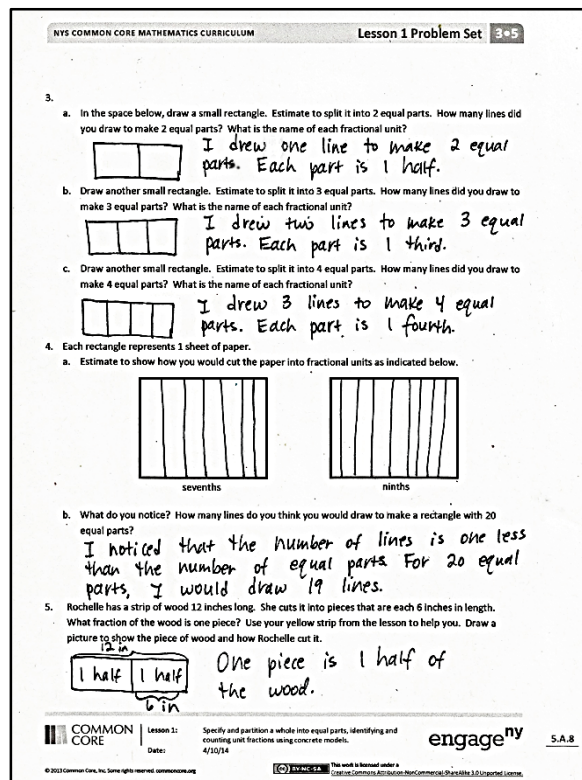 NYS COMMON CORE MATHEMATICS CURRICULUM
Lesson 1 Problem Set 3•5
3.
a. In the space below, draw a small rectangle. Estimate to split it into 2 equal parts. How many lines did
you draw to make 2 equal parts? What is the name of each fractional unit?
I drew one line to make 2 equal
parts. Each part is 1 half.
b. Draw another small rectangle. Estimate to split it into 3 equal parts. How many lines did you draw to
make 3 equal parts? What is the name of each fractional unit?
I drew two lines to make 3 equal
parts. Each part is 1 third.
c. Draw another small rectangle. Estimate to split it into 4 equal parts. How many lines did you draw to
make 4 equal parts? What is the name of each fractional unit?
I drew 3 lines to make 4 equal
parts. Each part is 1 fourth.
4. Each rectangle represents 1 sheet of paper.
a. Estimate to show how you would cut the paper into fractional units as indicated below.
sevenths
ninths
b. What do you notice? How many lines do you think you would draw to make a rectangle with 20
equal parts?
I noticed that the number of lines is one less
than the number of equal parts. For 20 equal
parts, I would draw 19 lines.
5. Rochelle has a strip of wood 12 inches long. She cuts it into pieces that are each 6 inches in length.
What fraction of the wood is one piece? Use your yellow strip from the lesson to help you. Draw a
picture to show the piece of wood and how Rochelle cut it.
12 in
1 half 1 half
6 in
One piece is 1 half of
the wood.
COMMON
CORE
Lesson 1:
Date:
Specify and partition a whole into equal parts, identifying and
counting unit fractions using concrete models.
4/10/14
engage ny
5.A.8
© 2013 Common Core, Inc. Some rights reserved. commoncore.org
CC BY-NC-SA
This work is licensed under a
Creative Commons Attribution-NonCommercial-ShareAlike 3.0 Unported License.